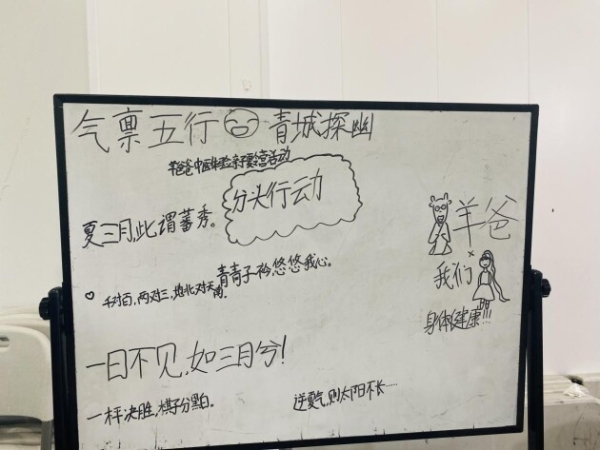 气禀五行 青城探幽
羊爸爸中医体验亲子露营活动
分头行动
夏三月,此谓蕃秀。
羊爸
×
我们
身体健康!!!
青青子衿,悠悠我心。
千对百,两对三,地北对天南。
一日不见,如三月兮!
一枰决胜,棋子分黑白。
逆夏气,则太阳不长……